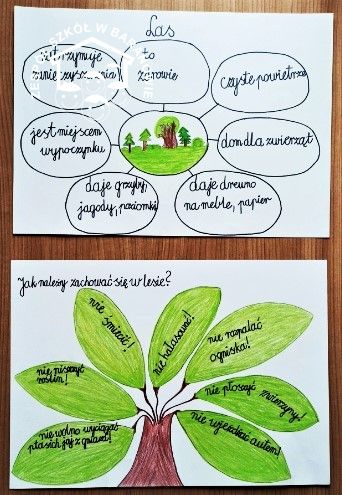 Las
zatrzymuje
zanieczyszczenia
to
zdrowie
czyste powietrze
jest miejscem
wypoczynku
dom dla zwierząt
daje grzyby,
jagody, poziomki
daje drewno
na meble, papier
Jak należy zachować się w lesie?
nie śmiecić!
nie hałasować!
nie rozpalać
ogniska!
nie niszczyć
roślin!
nie płoszyć zwierzyny!
nie wolno wyciągać
ptasich jaj z gniazd!
nie wjeżdżać autem!